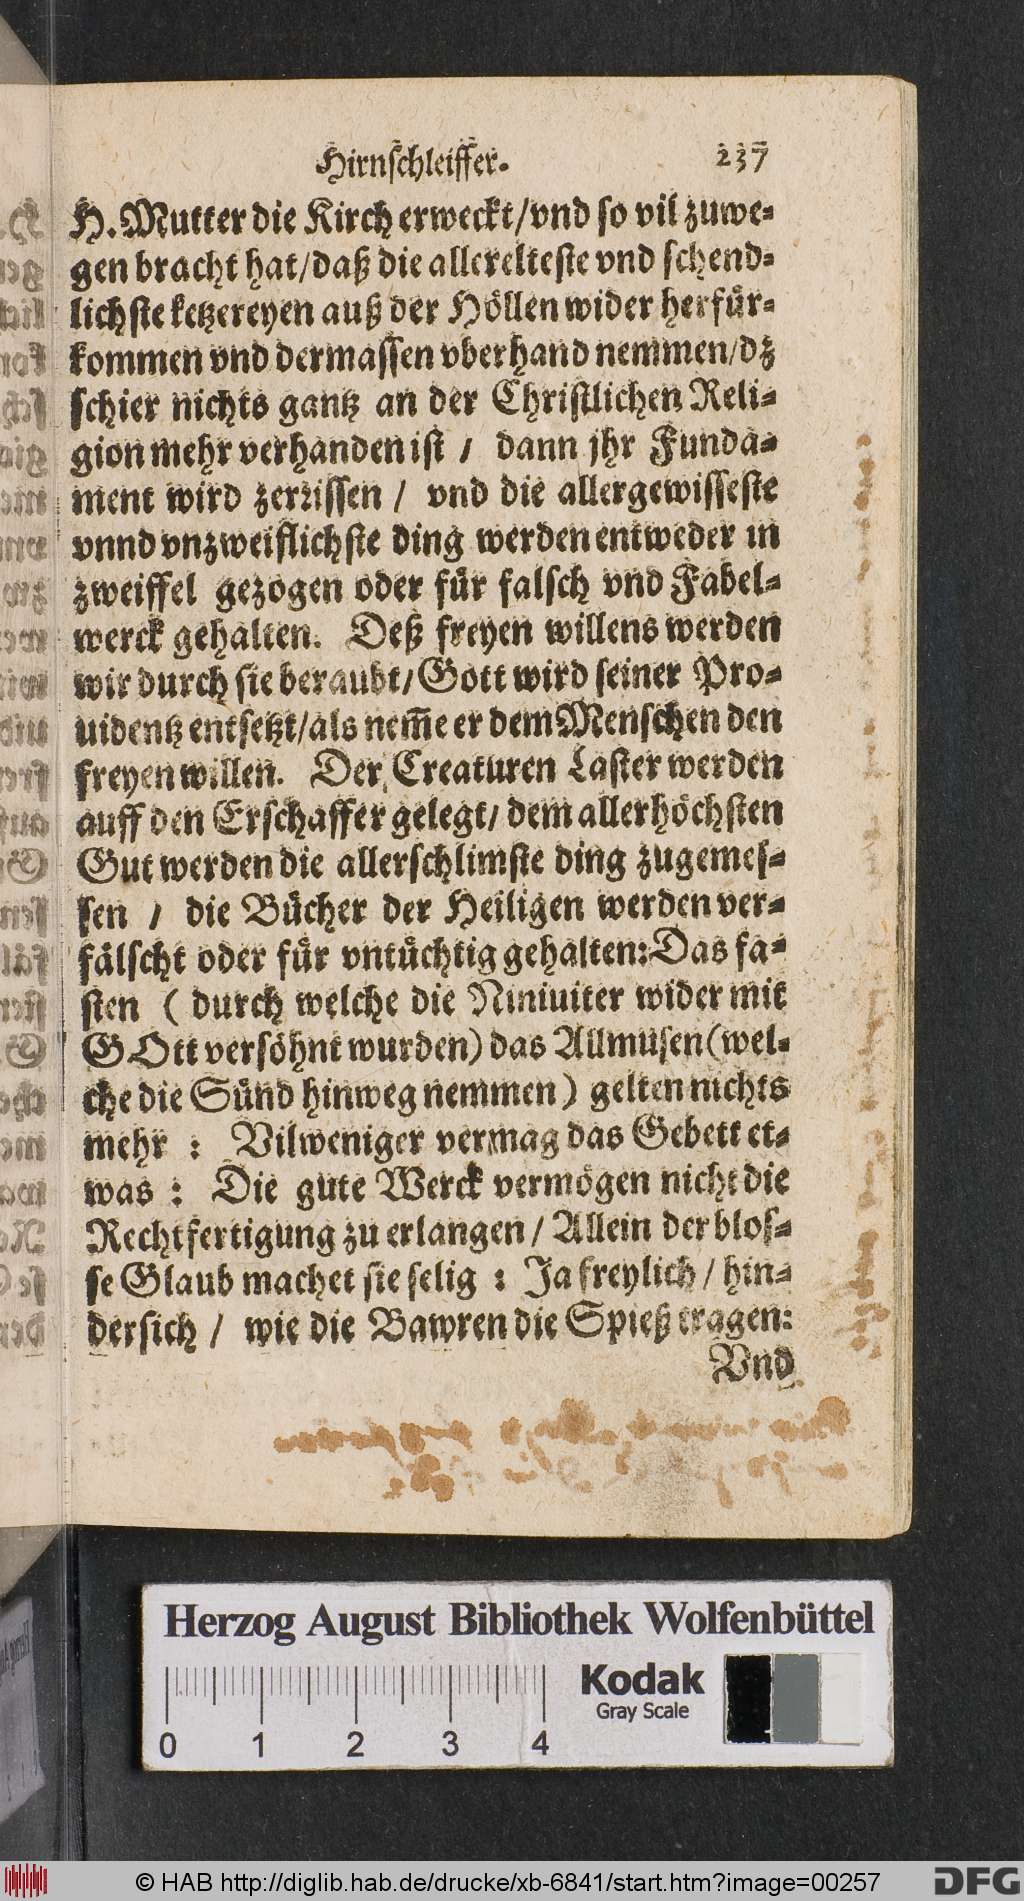 Hirnschleiffer. 237
H. Mutter die Kirch erweckt/vnd so vil zuwe-
gen bracht hat/daß die allerelteste vnd schend-
lichste ketzereyen auß der Höllen wider herfür-
kommen vnd dermassen vberhand nemmen/dz
schier nichts gantz an der Christlichen Reli-
gion mehr verhanden ist / dann jhr Funda-
ment wird zerrissen / vnd die allergewisseste
vnnd vnzweiflichste ding werden entweder in
zweiffel gezogen oder für falsch vnd Fabel-
werck gehalten. Deß freyen willens werden
wir durch sie beraubt/Gott wird seiner Pro-
uidentz entsetzt/als nem̄e er dem Menschen den
freyen willen. Der Creaturen Laster werden
auff den Erschaffer gelegt/ dem allerhöchsten
Gut werden die allerschlimste ding zugemes-
sen / die Bücher der Heiligen werden ver-
fälscht oder für vntüchtig gehalten: Das fa-
sten ( durch welche die Niniuiter wider mit
GOtt versöhnt wurden) das Allmusen (wel-
che die Sünd hinweg nemmen) gelten nichts
mehr : Vilweniger vermag das Gebett et-
was : Die gute Werck vermögen nicht die
Rechtfertigung zu erlangen / Allein der blos-
se Glaub machet sie selig : Ja freylich / hin-
dersich / wie die Bawren die Spieß tragen:
Vnd
Herzog August Bibliothek Wolfenbüttel
Kodak
Gray Scale
0 1 2 3 4
© HAB http://diglib.hab.de/drucke/xb-6841/start.htm?image=00257
DFG